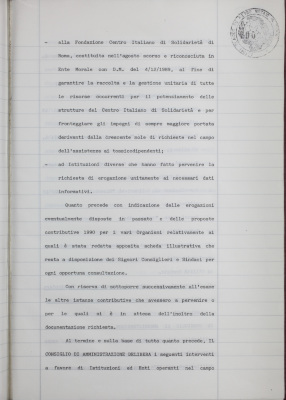 - alla Fondazione Centro Italiano di Solidarietà di
Roma, costituita nell'agosto scorso e riconosciuta in
Ente Morale con D.M. del 4/12/1989, al fine di
garantire la raccolta e la gestione unitaria di tutte
le risorse occorrenti per il potenziamento delle
strutture del Centro Italiano di Solidarietà e per
fronteggiare gli impegni di sempre maggiore portata
derivanti dalla crescente mole di richieste nel campo
dell'assistenza ai tossicodipendenti;
- ad istituzioni diverse che hanno fatto pervenire la
richiesta di erogazione unitamente ai necessari dati
informativi.
Quanto precede con indicazione delle erogazioni
eventualmente disposte in passato e delle proposte
contributive 1990 per i vari Organismi relativamente ai
quali è stata redatta apposita scheda illustrativa che
resta a disposizione dei Signori Consiglieri e Sindaci per
ogni opportuna consultazione.
Con riserva di sottoporre successivamente all'esame
le altre istanze contributive che avessero a pervenire o
per le quali si è in attesa dell'inoltro della
documentazione richiesta.
Al termine e sulla base di tutto quanto precede, IL
CONSIGLIO DI AMMINISTRAZIONE DELIBERA i seguenti interventi
a favore di Istituzioni ed Enti operanti nel campo